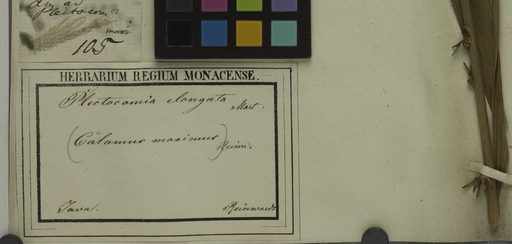 Plectocom
105
HERBARIUM REGIUM MONACENSE.
Plectocomia elongata Mart.
(Calamus maximus) Reinw.
Java. Reinwardt